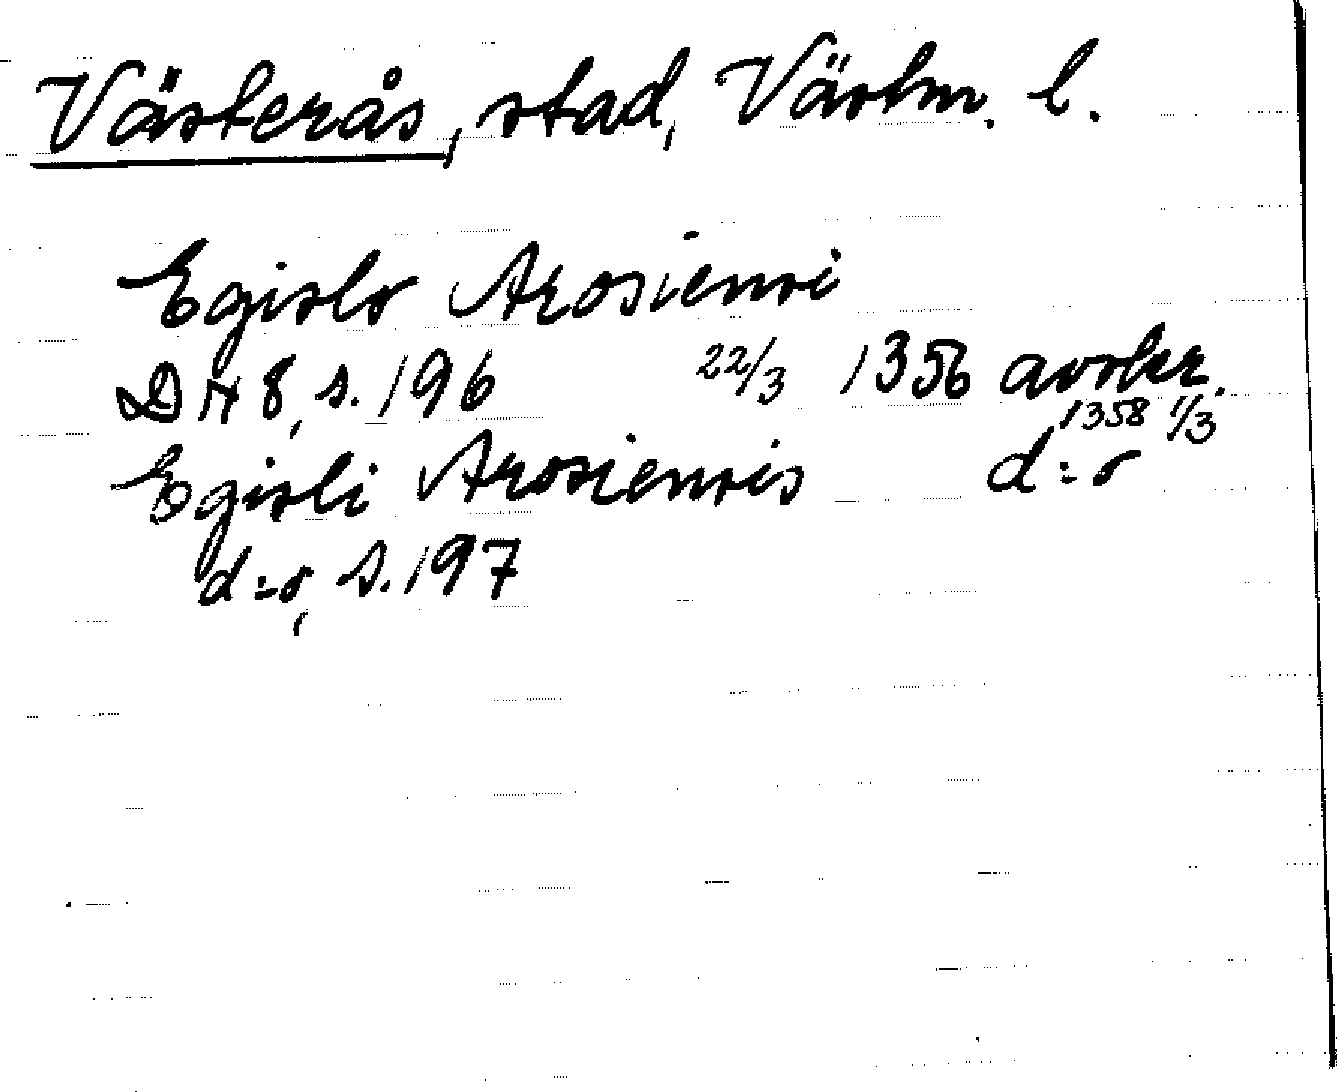 Västerås, stad, Västm. l.
Egislo Arosiensi
DN 8, s. 196 22/3 1356 avskr.
1358 1/3
Egisli Arosiensis d:o
d:o, s. 197